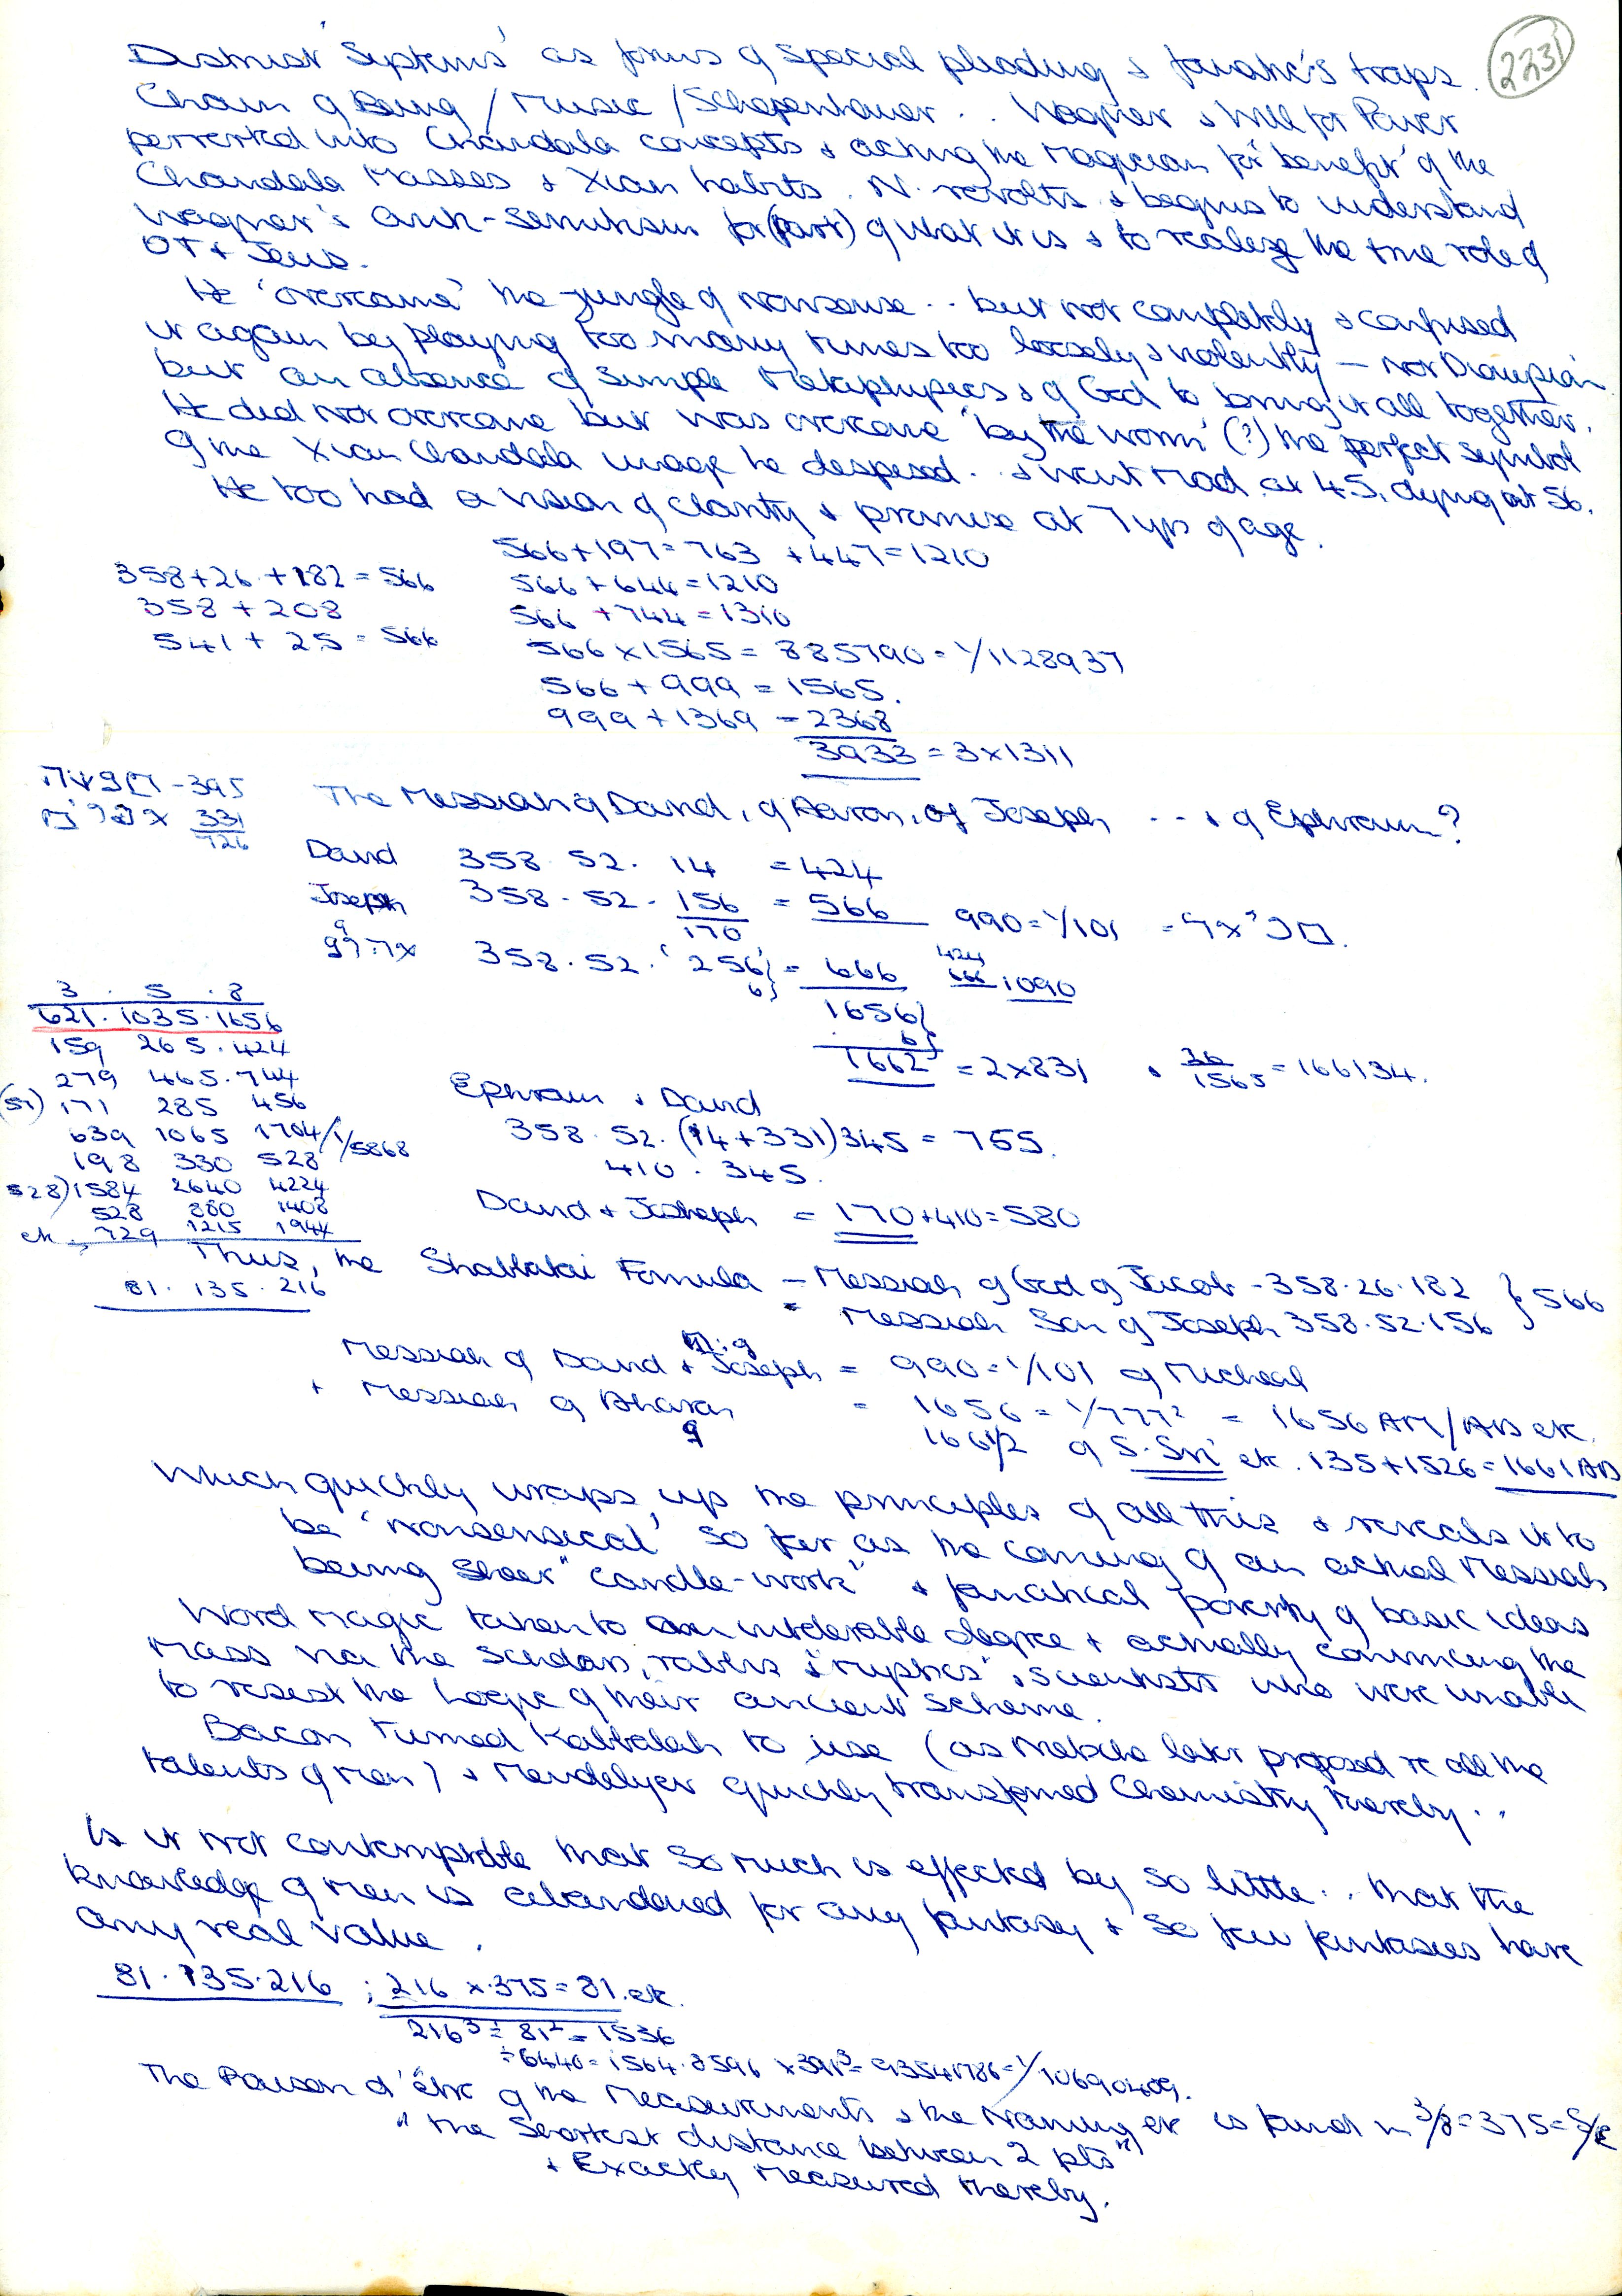 2231
Distrust 'Systems' as forms of special pleading & fanatic's traps.
Chain of Being / Music / Schopenhauer . . Wagner & Will for Power
perverted into Chandala concepts & acting the Magician for 'benefit' of the
Chandala Masses & Xian habits. N. revolts & begins to understand
Wagner's anti-Semitism for (part) of what it is & to realize the true role of
OT & Jews.
He 'overcame' the jungle of nonsense . . but not completely & confused
it again by playing too many tunes too loosely & violently — not Dionysian
but an absence of simple Metaphysics & of God to bring it all together.
He did not overcome but was overcome 'by the worm' (?) the perfect symbol
of the Xian Chandala image he despised . . & went mad at 45, dying at 56.
He too had a vision of clarity & promise at 7 yrs of age.
566+197=763 +447=1210
358+26+182=566 566+644=1210
358+208 566+744=1310
541+25=566 566x1565=885790=1/1128937
566+999=1565.
999+1369=2368
3933=3x1311
-395
331
726
The Messiah of David, of Aaron, of Joseph . . . & of Ephraim?
David 358. 52. 14 =424
Joseph 358. 52. 156 = 566 990=1/101
170
358. 52. 256 = 666 424 666 1090
6
1656
6
1662 =2x831 . 26/1565=166134.
3 . 5 . 8
621. 1035. 1656
159 265. 424
279 465. 744
(57) 171 285 456
639 1065 1704/1/5868
198 330 528
528) 1584 2640 4224
528 880 1408
etc 729 1215 1944
81. 135. 216
Ephraim & David
358. 52. (14+331)345=755.
410. 345.
David & Joseph = 170+410=580
Thus, the Shabbatai Formula — Messiah of God of Jacob - 358.26.182 } 566
= Messiah Son of Joseph 358.52.156
Messiah of David & Joseph = 990=1/101 of Micheal
+ Messiah of Aharon = 1656=1/777² = 1656 AM/AD etc.
1661/2 of S.Svi etc. 135+1526=1661 AD
Which quickly wraps up the principles of all this & reveals it to
be 'nonsensical' so far as the coming of an actual Messiah
being sheer "candle-work" & fanatical poverty of basic ideas
Word magic taken to an intolerable degree & actually convincing the
mass via the scholars, rabbis & 'mystics' & scientists who were unable
to resist the Logic of their ancient scheme.
Bacon turned Kabbalah to use (as Nietzche later proposed re all the
talents of man) & Mendelyev quickly transformed Chemistry thereby . .
Is it not contemptible that so much is effected by so little . . that the
knowledge of men is abandoned for any fantasy & so few fantasies have
any real value.
81. 135. 216 ; 216 x.375=81. etc.
216³÷81²=1536
÷6440=1564.8596 x391³=93541786=1/10690409.
The Raison d'être of the Measurements & the Naming etc is found in 3/8=375=
"the shortest distance between 2 pts"
& Exactly measured thereby.